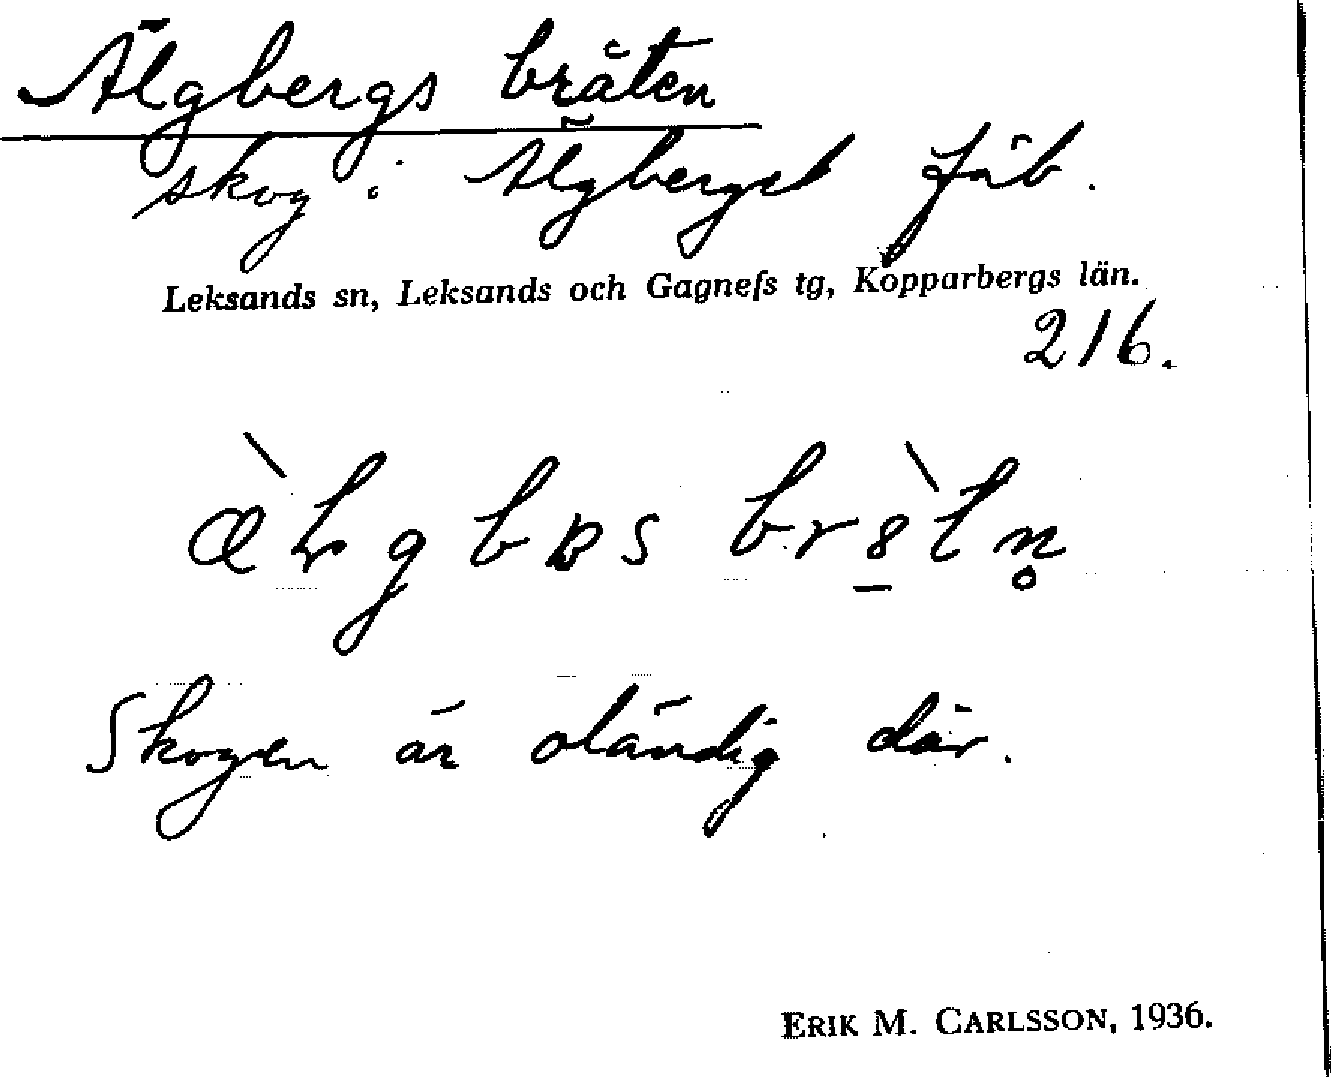 Älgbergs bråten
skog i Älgberget fäb.
Leksands sn, Leksands och Gagnefs tg, Kopparbergs län.
216.
Skogen är oländig där.
ERIK M. CARLSSON, 1936.